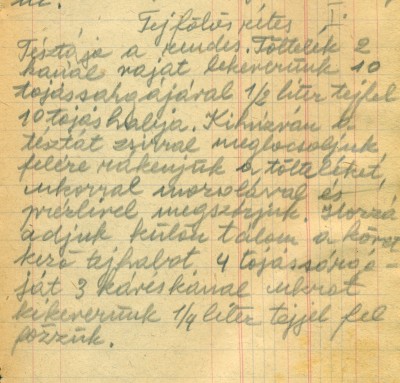 Tejfölös rétes I.
Tésztája a rendes. Töltelék 2
kanál vajat kikeverünk 10
tojássargájával 1/2 liter tejfel
10 tojás habja. Kihúzván a
tésztát zsirral meglocsoljuk
felére rákenjük a tölteléket,
cukorral mazsolával és
prézlivel megszórjuk. Hozzá
adjuk külön tálon a követ
kező tejhabot. 4 tojássárgá-
ját 3 káveskanál cukrot
kikeverünk 1/4 liter tejjel fel
főzzük.